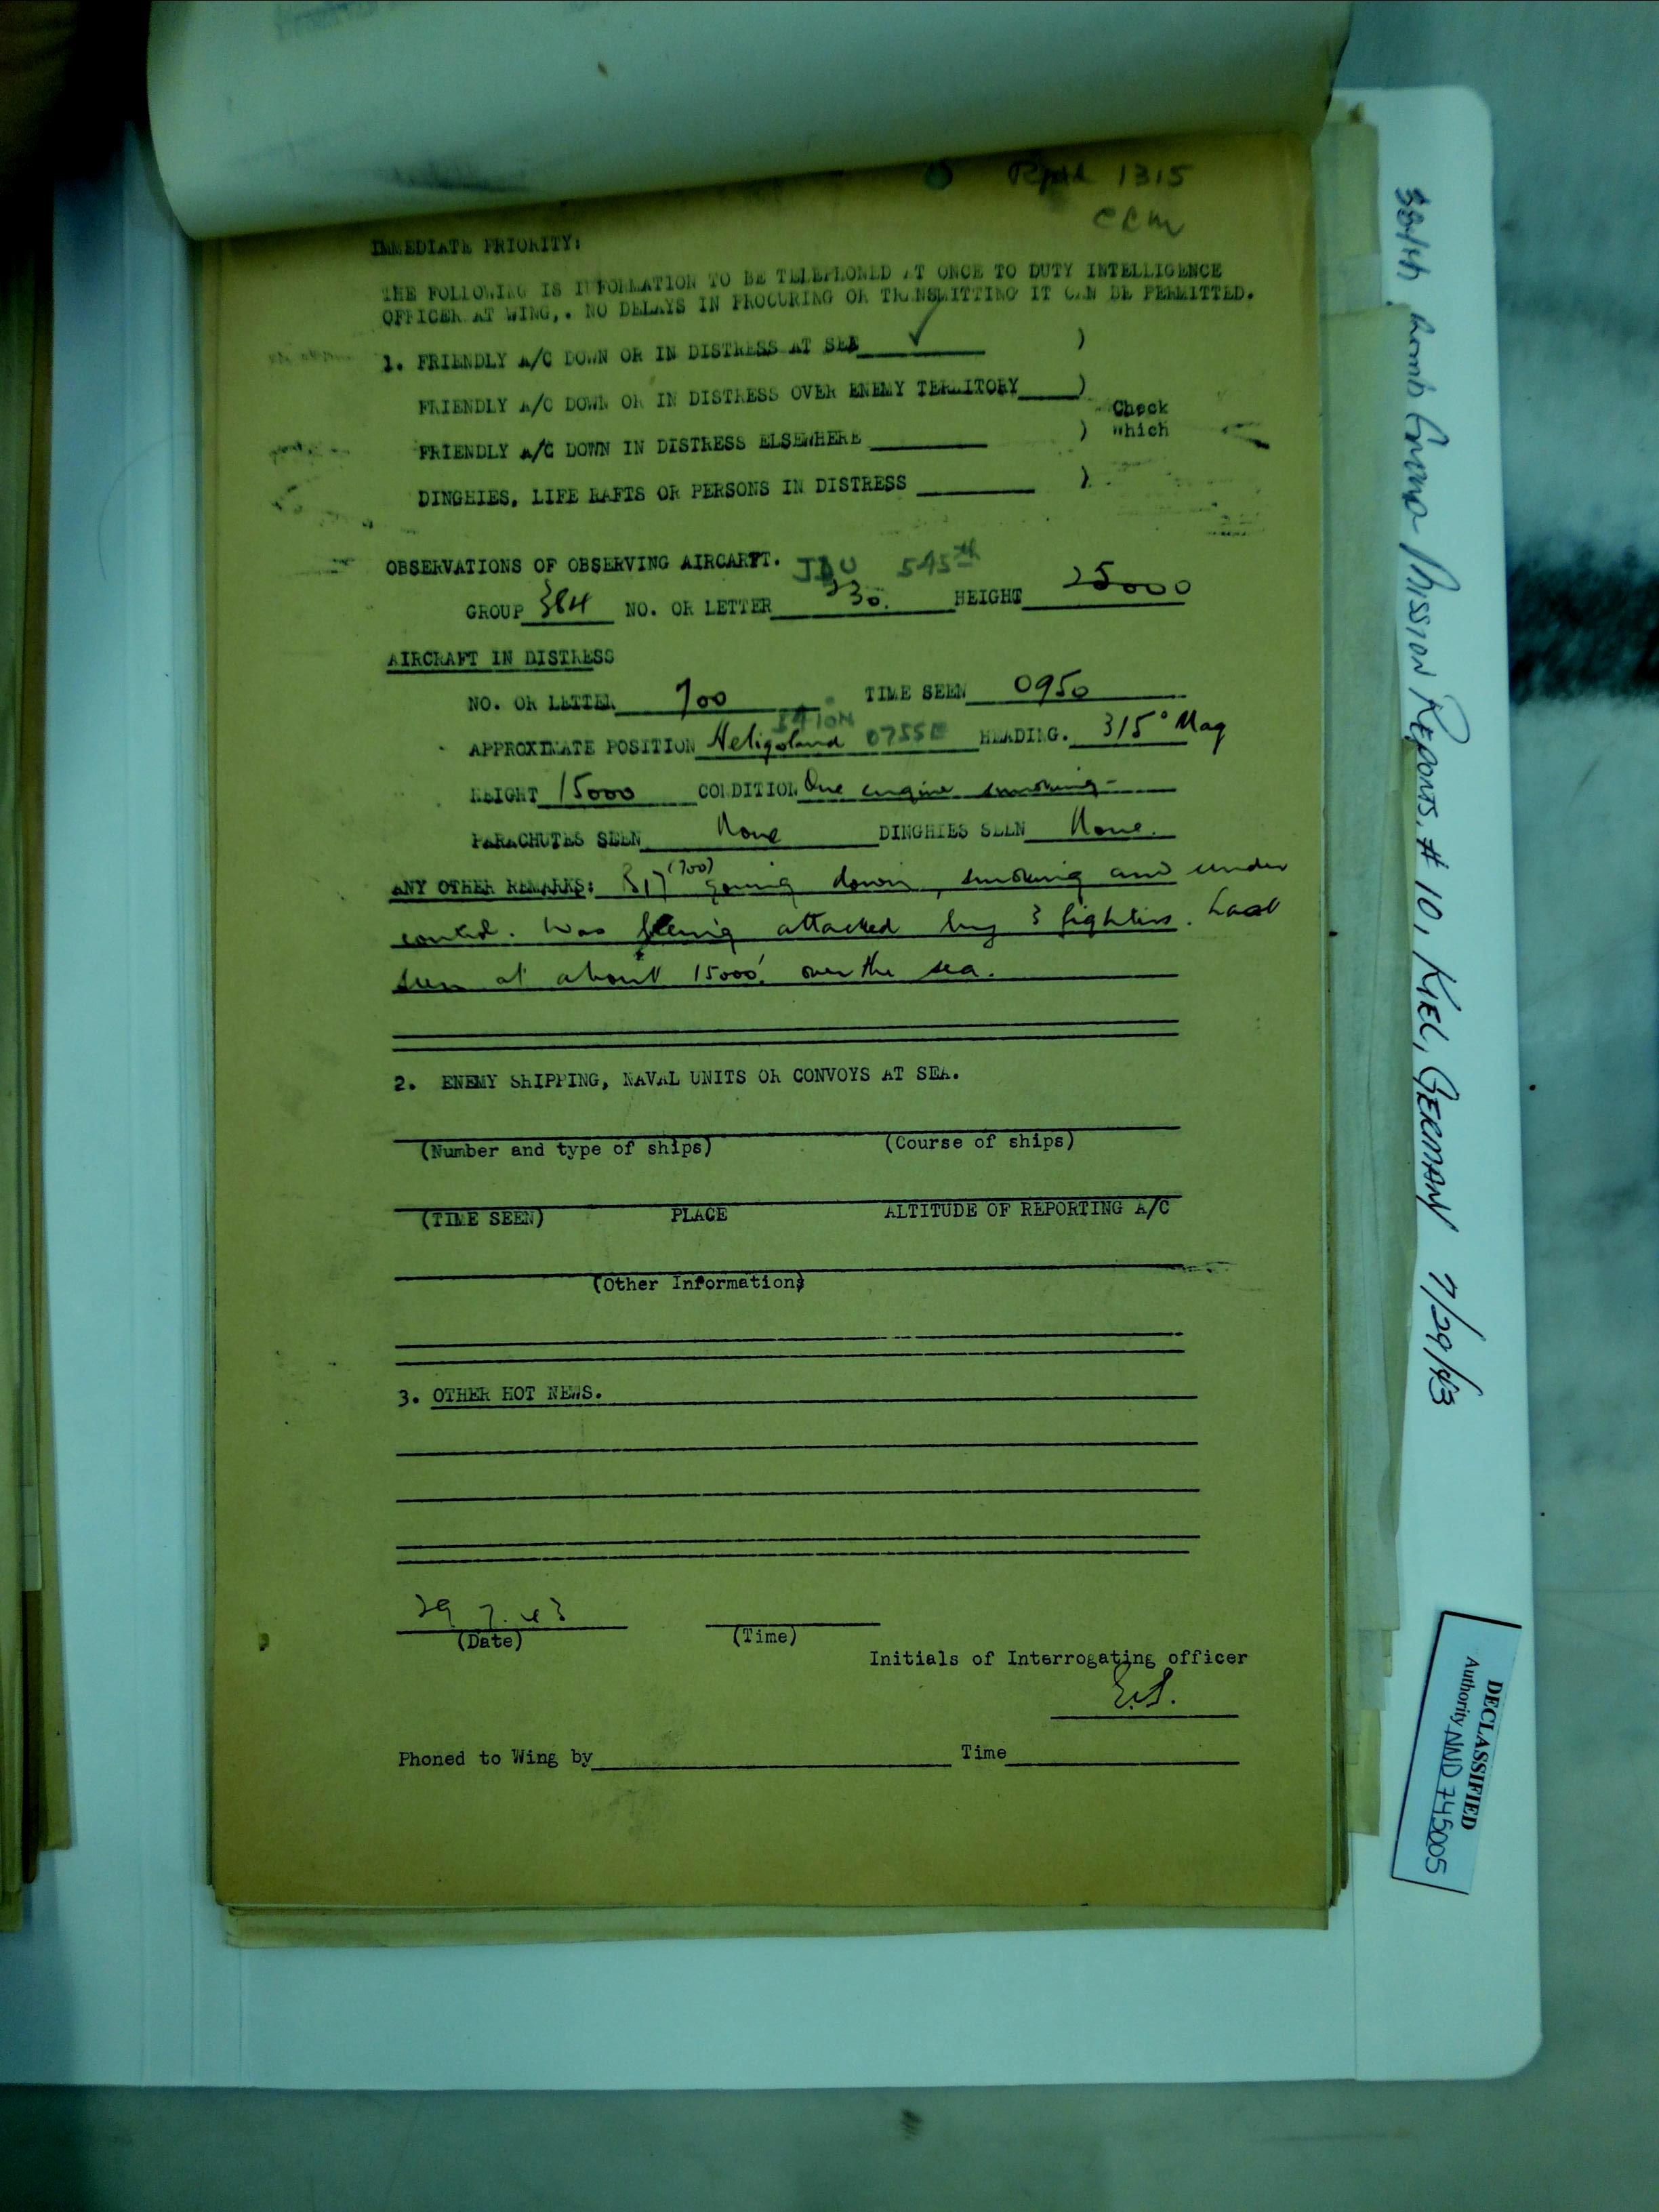 1315
CRM
IMMEDIATE PRIORITY:
THE FOLLOWING IS INFORMATION TO BE TELEPHONED AT ONCE TO DUTY INTELLIGENCE
OFFICER AT WING,. NO DELAYS IN PROCURING OR TRANSMITTING IT CAN BE PERMITTED.
1. FRIENDLY A/C DOWN OR IN DISTRESS AT SEE ✓ )
FRIENDLY A/C DOWN OR IN DISTRESS OVER ENEMY TERRITORY )
Check
FRIENDLY A/C DOWN IN DISTRESS ELSEWHERE ) which
DINGHIES, LIFE RAFTS OR PERSONS IN DISTRESS )
OBSERVATIONS OF OBSERVING AIRCARFT. 545th
GROUP 384 NO. OR LETTER 330. HEIGHT 25000
AIRCRAFT IN DISTRESS
NO. OR LETTER 700 TIME SEEN 0950
5410N
APPROXIMATE POSITION Heligoland 0755E HEADING. 315° Mag
HEIGHT 15000 CONDITION One engine smoking
PARACHUTES SEEN None DINGHIES SEEN None.
ANY OTHER REMARKS: B17 (700) going down, smoking and under
control. Was being attacked by 3 fighters. Last
seen at about 15000' over the sea.
2. ENEMY SHIPPING, NAVAL UNITS OR CONVOYS AT SEA.
(Number and type of ships) (Course of ships)
(TIME SEEN) PLACE ALTITUDE OF REPORTING A/C
(Other Information)
3. OTHER HOT NEWS.
29 7. 43
(Date) (Time)
Initials of Interrogating officer
E.S.
Phoned to Wing by Time
384th Bomb Group Mission Reports, # 10, KIEL, GERMAN 7/29/43
DECLASSIFIED
Authority NND 745005